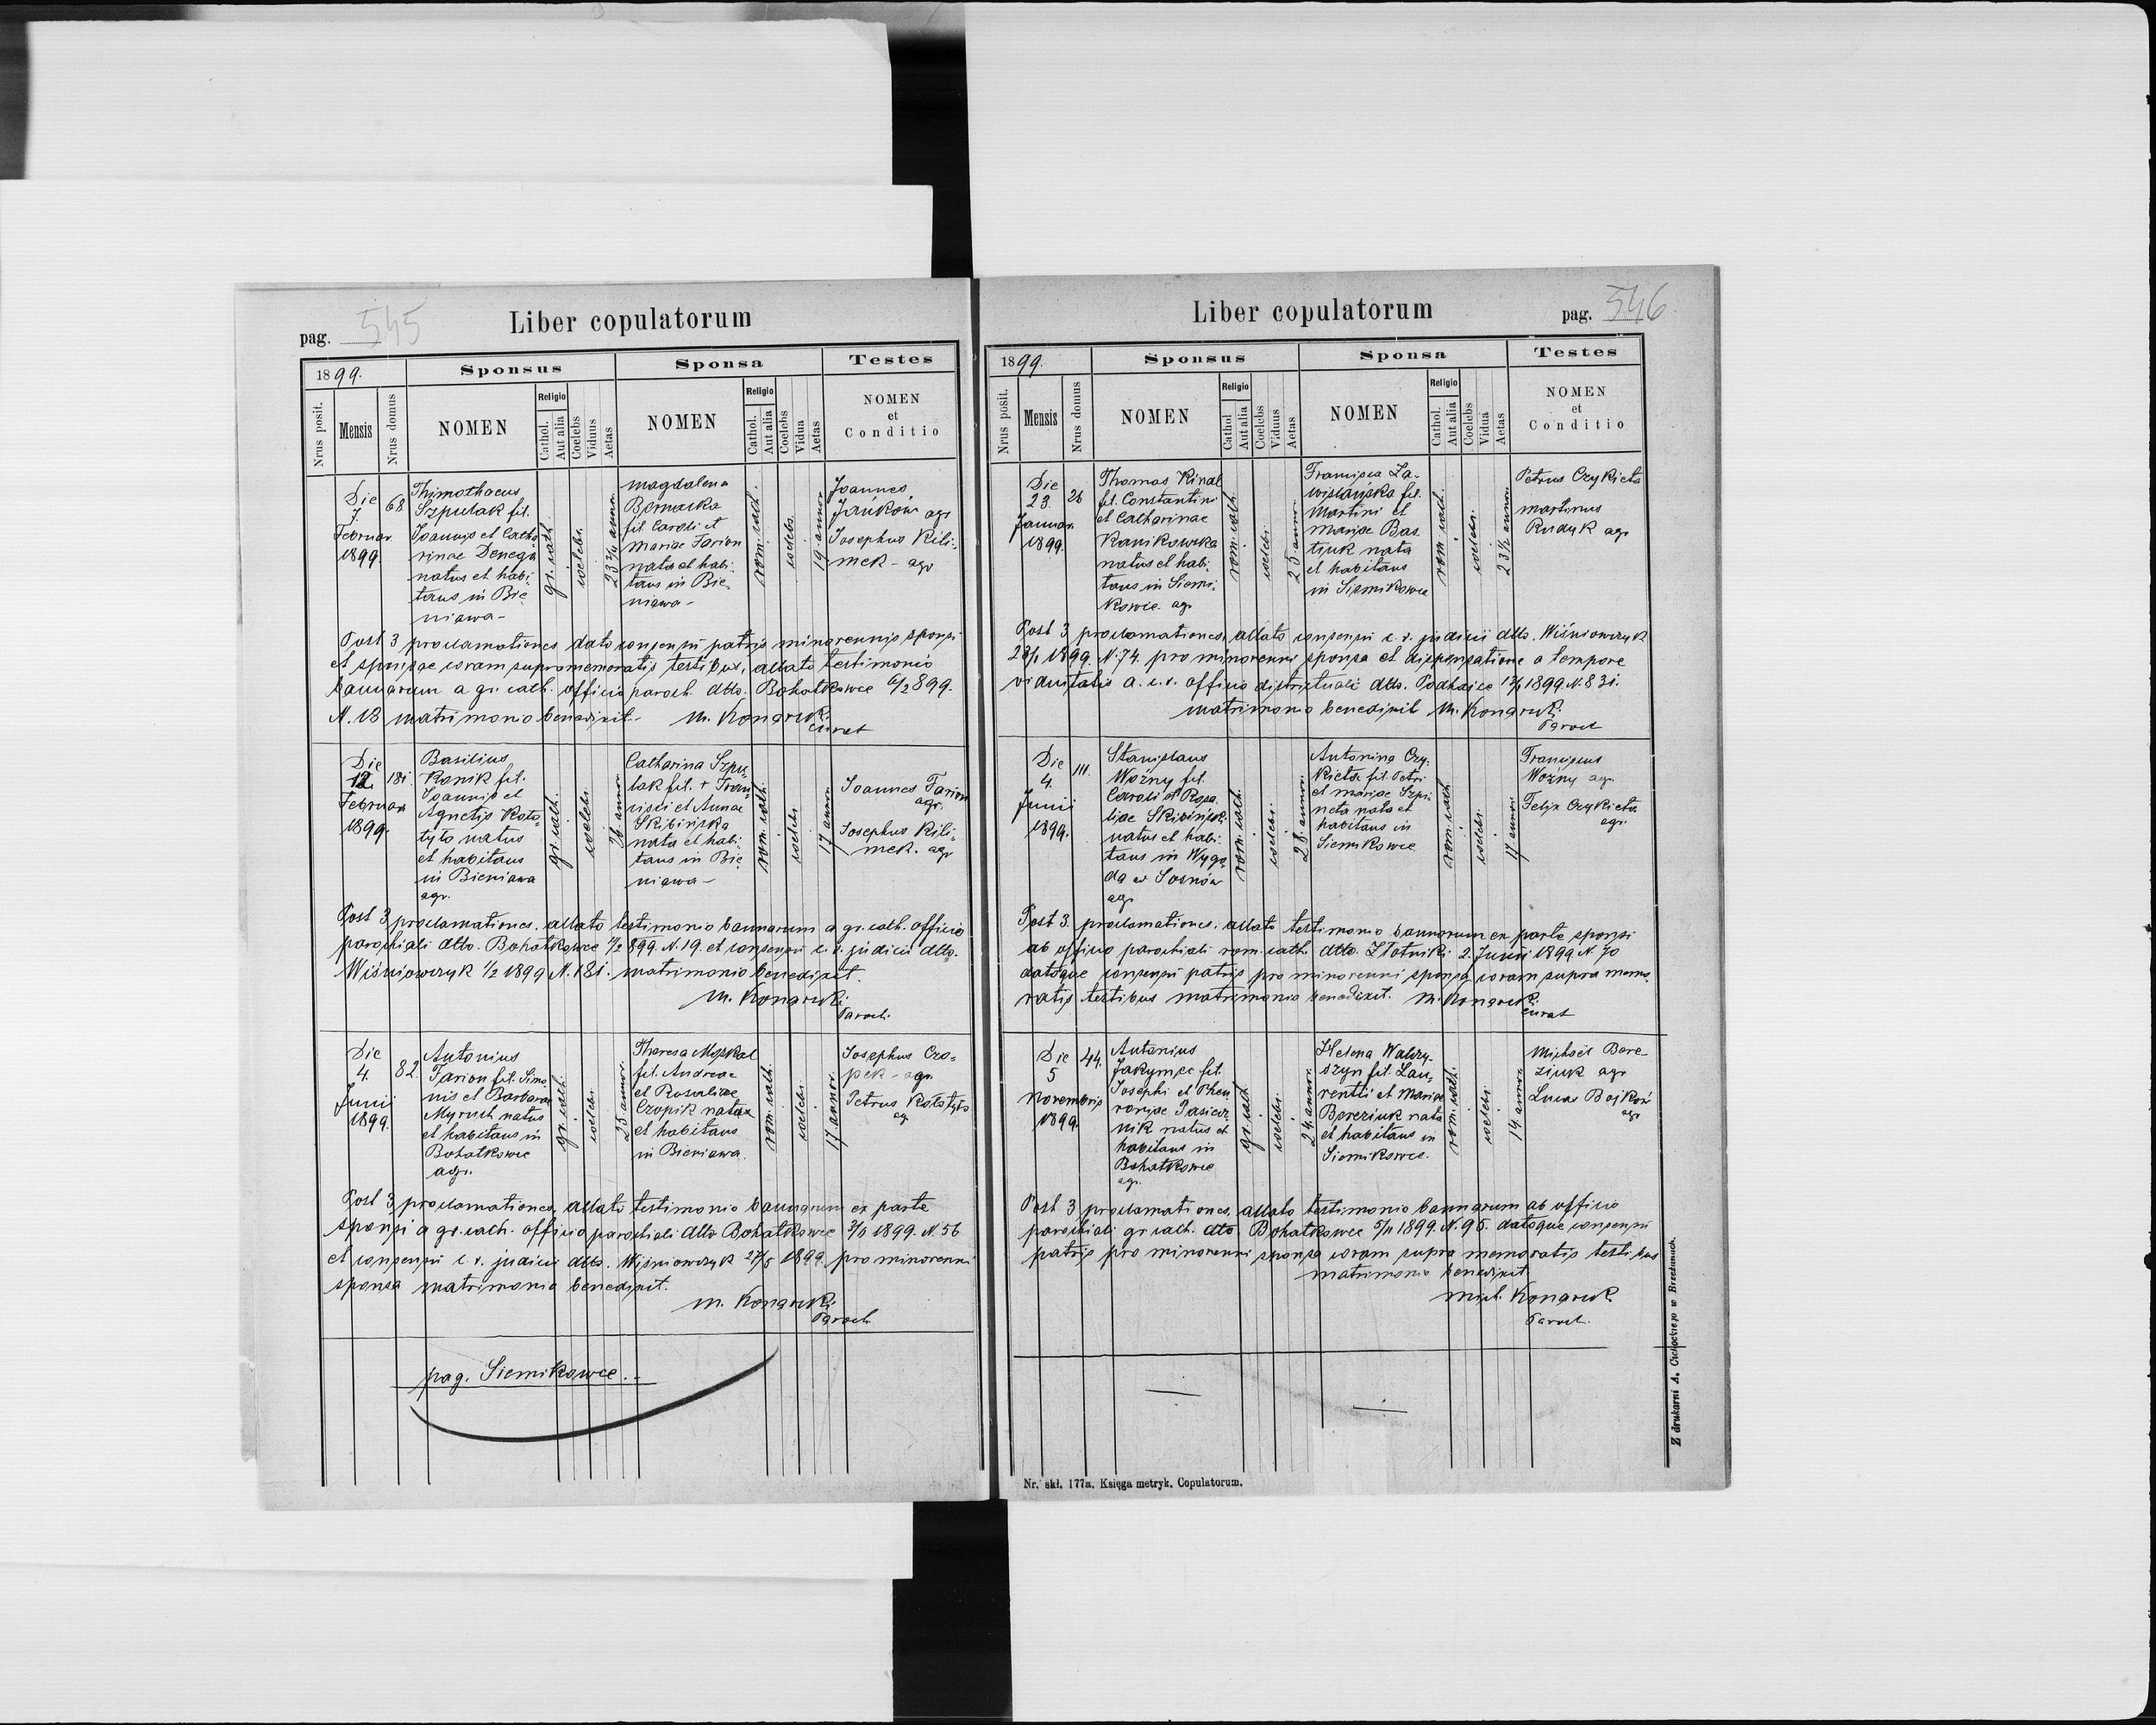 Liber copulatorum
pag. 545
1899.
Sponsus
Sponsa
Testes
Nrus posit.
Mensis
Nrus domus
NOMEN
Religio
Cathol.
Aut alia
Coelebs
Viduus
Aetas
NOMEN
Religio
Cathol.
Aut alia
Coelebs
Vidua
Aetas
NOMEN
et
Conditio
Die
7.
Februar.
1899.
68
Thimothaeus
Szpulak fil.
Joannis et Catha
rinae Denega
natus et habi-
tans in Bie
niawa-
gr. cath.
coelebs.
23¾ annor.
Magdalena
Bernacka
fil Caroli et
Mariae Farion
nata et habi-
tans in Bie-
niawa-
rom. cath.
coelebs.
19. annor
Joannes
Jańków agr
Josephus Kili-
mek - agr
Post 3 proclamationes dato consensu patris minorennis sponsi
et sponsae coram supramemoratis testibus, allato testimonio
bannorum a gr. cath. officio paroch. ddto. Bohatkowce 6/2 899.
N. 18 matrimonio benedixit. M. Konarski
curat
Die
12
Februar
1899.
181.
Basilius
Kanik fil.
Joannis et
Agnetis Koło-
tyło natus
et habitans
in Bieniawa
agr.
gr. cath.
coelebs.
26 annor
Catharina Szpu
lak fil. + Fran-
cisci et Annae
Skibińska
nata et habi-
tans in Bie
niawa-
rom. cath.
coelebs.
17 annor
Joannes Farion
agr.
Josephus Kili-
mek. agr
Post 3 proclamationes. allato testimonio bannorum a gr. cath. officio
parochiali ddto. Bohatkowce 1/2 899. N. 19. et consensu c. r. judicii ddto.
Wiśniowczyk 1/2 1899 N. 181. matrimonio benedixit.
M. Konarski
Paroch.
Die
4.
Junii
1899.
82.
Antonius
Farion fil. Simo
nis et Barbarae
Myruch natus
et habitans in
Bohatkowce
agr.
gr. cath.
coelebs.
25 annor.
Theresa Moskal
fil. Andreae
et Rosaliae
Czopik nata
et habitans
in Bieniawa.
rom. cath.
coelebs
17 annor.
Josephus Czo-
pek - agr.
Petrus Kołotyło
ag
Post 3 proclamationes, allato testimonio bannorum ex parte
sponsi a gr. cath. officio parochiali ddto Bohatkowce 3/6 1899. N. 56
et consensu c. r. judicii ddto. Wiśniowczyk 27/5 1899. pro minorenni
sponsa matrimonio benedixit.
M. Konarski
Paroch
pag. Siemikowce.
Liber copulatorum
pag. 546
1899.
Sponsus
Sponsa
Testes
Nrus posit.
Mensis
Nrus domus
NOMEN
Religio
Cathol
Aut alia
Coelebs
Viduus
Aetas
NOMEN
Religio
Cathol.
Aut alia
Coelebs
Vidua
Aetas
NOMEN
et
Conditio
Die
23.
Januar.
1899.
26
Thomas Kinal
fil. Constantini
et Catharinae
Kanikowska
natus et habi-
tans in Siemi-
kowce. agr
rom. cath
coelebs.
25 annor.
Francisca Za-
wiślańska fil.
Martini et
Mariae Bas
tiuk nata
et habitans
in Siemikowce
rom. cath.
coelebs.
23½ annor.
Petrus Czykieta
Martinus
Rudyk agr
Post 3 proclamationes, allato consensu c. r. judicii ddto. Wiśniowczyk
1899. N. 74. pro minorenni sponsa et dispensatione a tempore
viduitatis a. c. r. officio districtuali ddto. Podhajce 1899. N. 831.
matrimonio benedixit M. Konarski
Paroch
Die
4.
Junii
1899.
111.
Stanislaus
Woźny fil.
Caroli et Rosa
liae Skibińska
natus et habi-
tans in Wygo
da ad Sosnów
agr
rom. cath.
coelebs.
28. annor.
Antonina Czy-
kieta fil. Petri
et Mariae Szpi-
neta nata et
habitans in
Siemikowce
rom. cath
coelebs.
17. annor.
Franciscus
Woźny agr.
Felix Czykieta
agr.
Post 3. proclamationes. allato testimonio bannorum ex parte sponsi
ab officio parochiali rom. cath. ddto. Złotniki 2. Junii 1899 N. 70
datoque consensu patris pro minorenni sponsa coram supra memo-
ratis testibus matrimonio benedixit. M. Konarski.
curat
Die
5
Novembris
1899
44.
Antonius
Jakymec fil.
Josephi et Pheu
roniae Pasiecz
nik natus et
habitans in
Bohatkowce
agr.
gr. cath
coelebs.
24. annor.
Helena Walczy-
szyn fil. Lau-
rentii et Mariae
Bereziuk nata
et habitans in
Siemikowce.
rom. cath.
coelebs
19. annor.
Michaël Bere-
ziuk agr
Lucas Bojków
agr
Post 3 proclamationes. allato testimonio bannorum ab officio
parochiali gr cath. ddto. Bohatkowce 5/11 1899. N. 96. datoque consensu
patris pro minorenni sponsa coram supra memoratis testibus
matrimonio benedixit.
Mich. Konarski
Paroch.
Nr. skł. 177a. Księga metryk. Copulatorum.
Z drukarni A. Cichockiego w Brzeżanach.